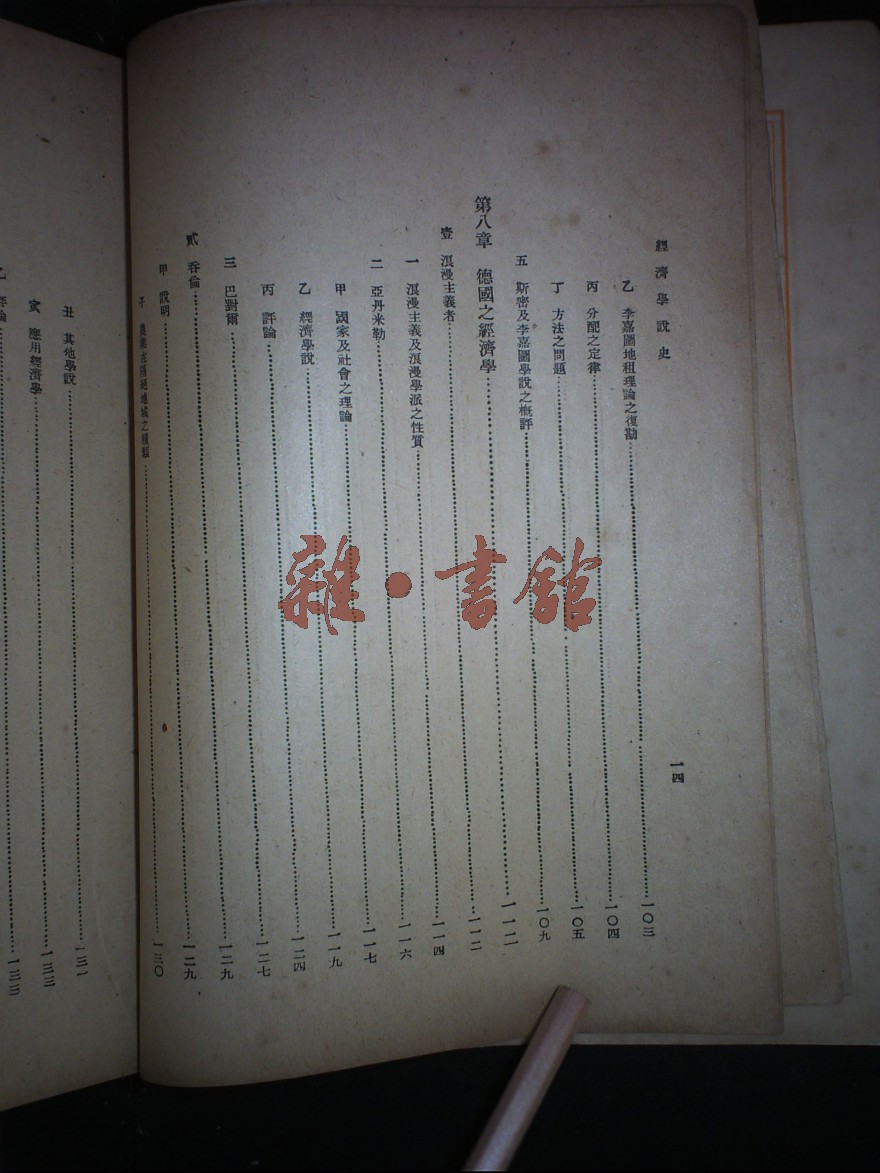 經濟學說史
一四
乙 李嘉圖地租理論之復勘 一〇三
丙 分配之定律 一〇四
丁 方法之問題 一〇五
五 斯密及李嘉圖學說之概評 一〇九
第八章 德國之經濟學 一一二
壹 浪漫主義者 一一二
一 浪漫主義及浪漫學派之性質 一一四
二 亞丹米勒 一一六
甲 國家及社會之理論 一一七
乙 經濟學說 一一九
丙 評論 一二四
三 巴對爾 一二七
貳 呑倫 一二九
甲 說明 一二九
子 農業在隔絕地域之種類 一三〇
丑 其他學說 一三一
寅 應用經濟學 一三三
乙 評論 一三三
雜·書館